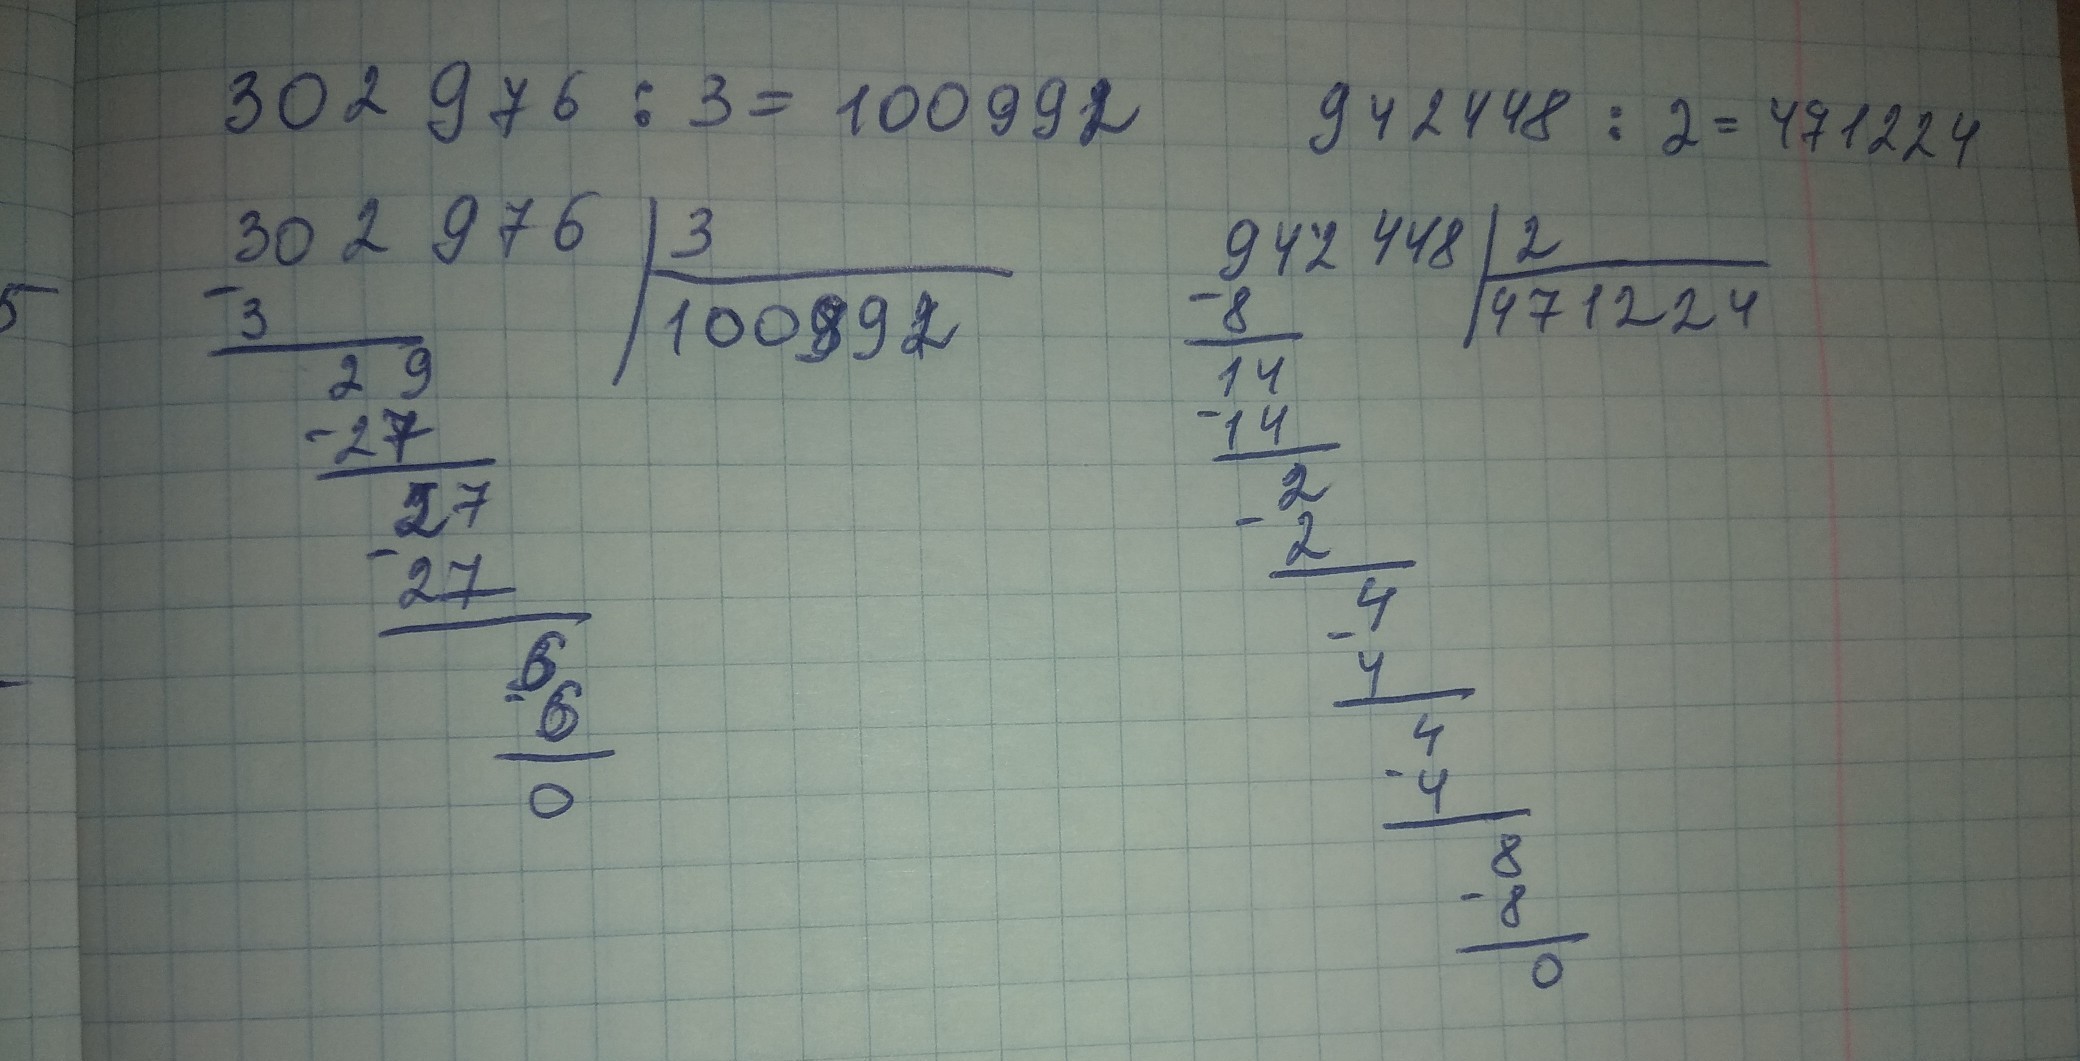 302 976 : 3 = 100992
302 976 | 3
- 3
100992
29
- 27
27
- 27
6
- 6
0
942448 : 2 = 471224
942 448 | 2
- 8
471224
14
- 14
2
- 2
4
- 4
4
- 4
8
- 8
0